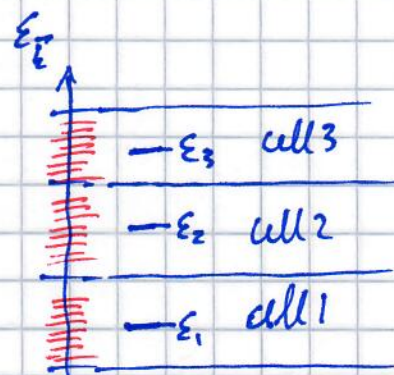 ε_k⃗
ε₃ cell 3
ε₂ cell 2
ε₁ cell 1